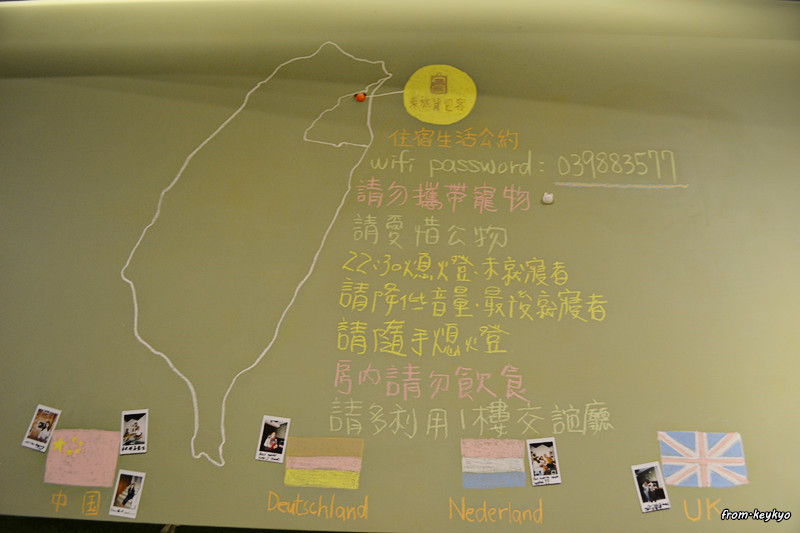 住宿生活公約
wifi password: 039883577
請勿攜帶寵物
請愛惜公物
22:30熄燈.未就寢者
請降低音量.最後就寢者
請隨手熄燈
房內請勿飲食
請多利用1樓交誼廳
中国
Deutschland
Nederland
UK
from-keykyo